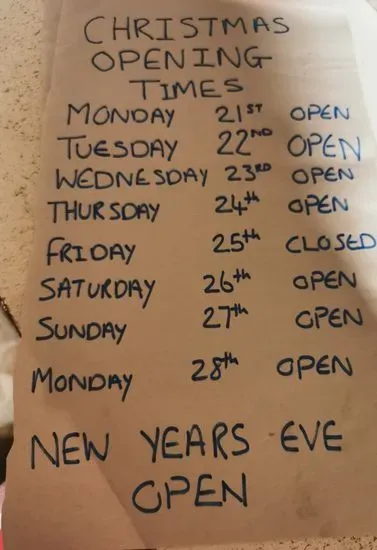 CHRISTMAS
OPENING
TIMES
MONDAY 21ST OPEN
TUESDAY 22ND OPEN
WEDNESDAY 23RD OPEN
THURSDAY 24th OPEN
FRIDAY 25th CLOSED
SATURDAY 26th OPEN
SUNDAY 27th OPEN
MONDAY 28th OPEN
NEW YEARS EVE
OPEN